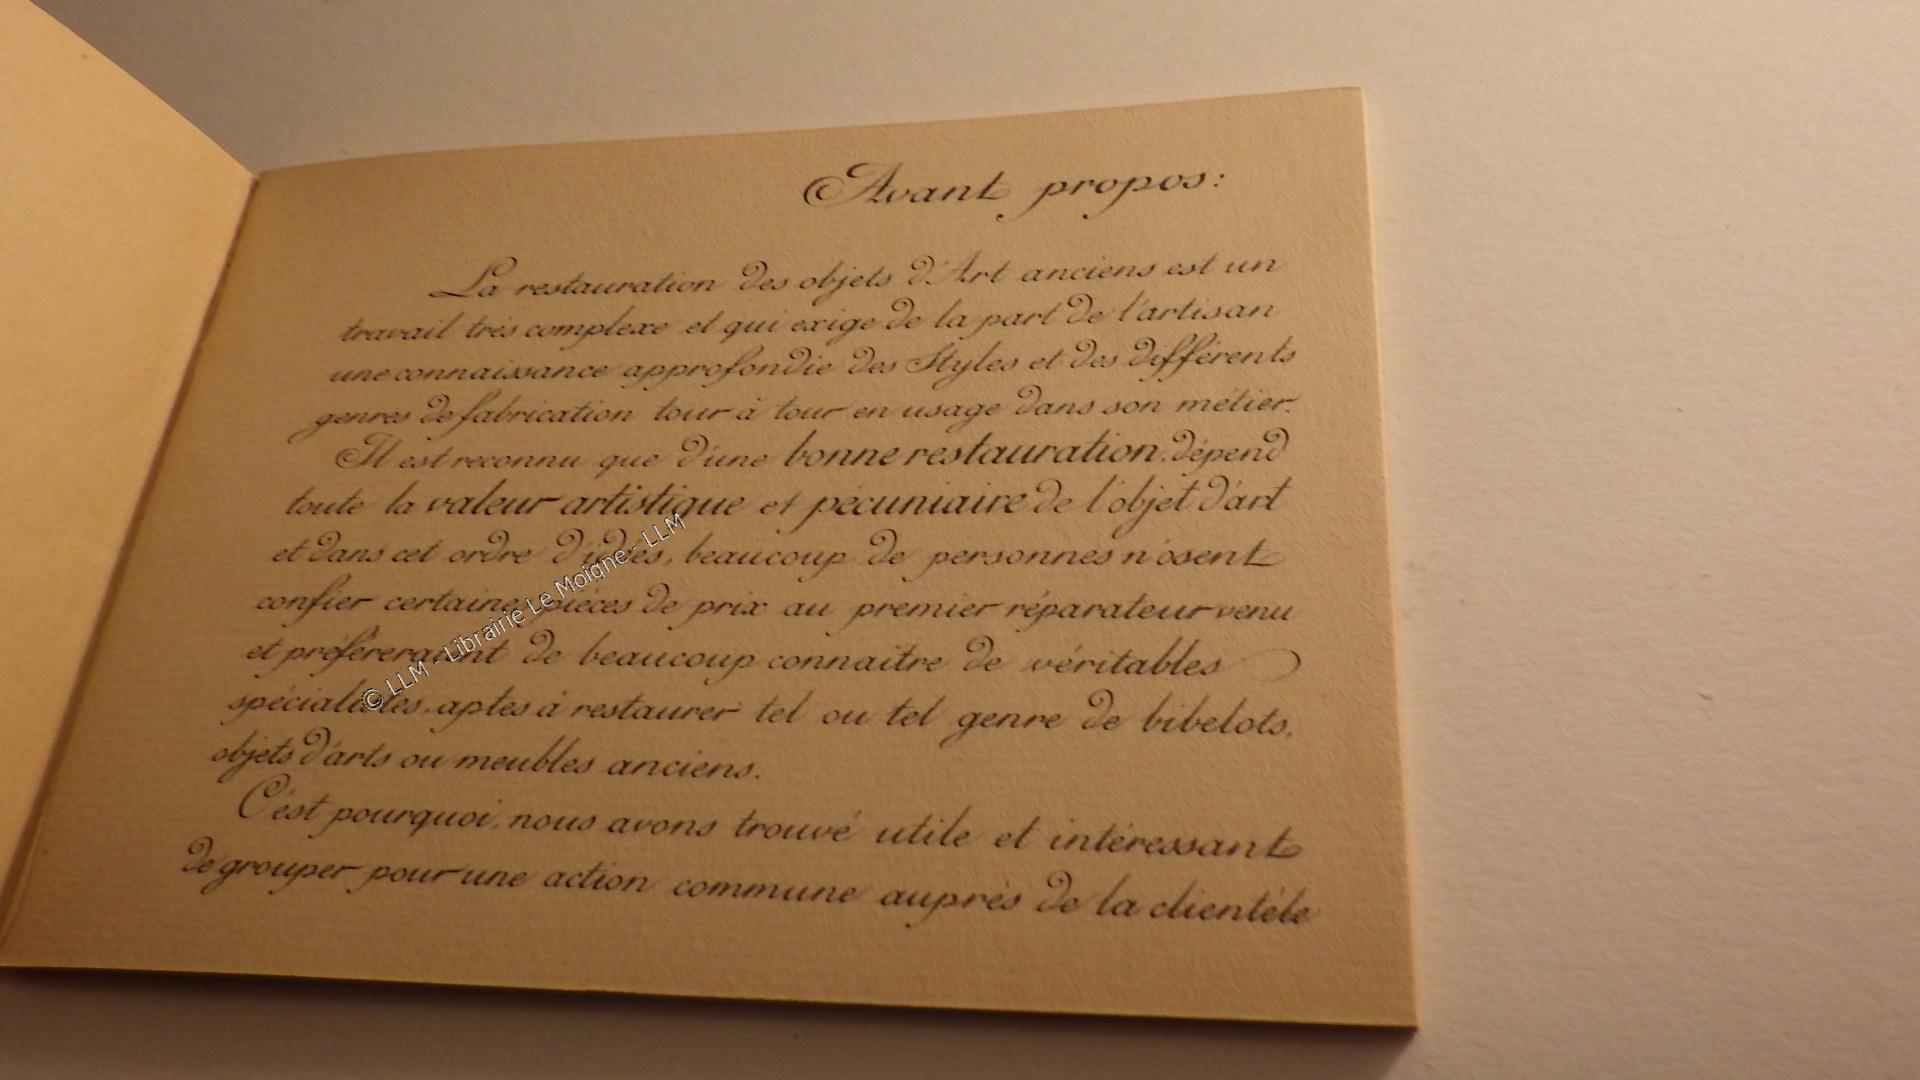 Avant propos:
La restauration des objets d'Art anciens est un
travail très complexe et qui exige de la part de l'artisan
une connaissance approfondie des Styles et des différents
genres de fabrication tour à tour en usage dans son métier.
Il est reconnu que d'une bonne restauration, dépend
toute la valeur artistique et pécuniaire de l'objet d'art
et dans cet ordre d'idées, beaucoup de personnes n'osent
confier certaines pièces de prix au premier réparateur venu
et préféreraient de beaucoup connaitre de véritables
spécialistes, aptes à restaurer tel ou tel genre de bibelots,
objets d'arts ou meubles anciens.
C'est pourquoi, nous avons trouvé utile et intéressant
de grouper pour une action commune auprès de la clientèle
© LLM - Librairie Le Moigne - LLM